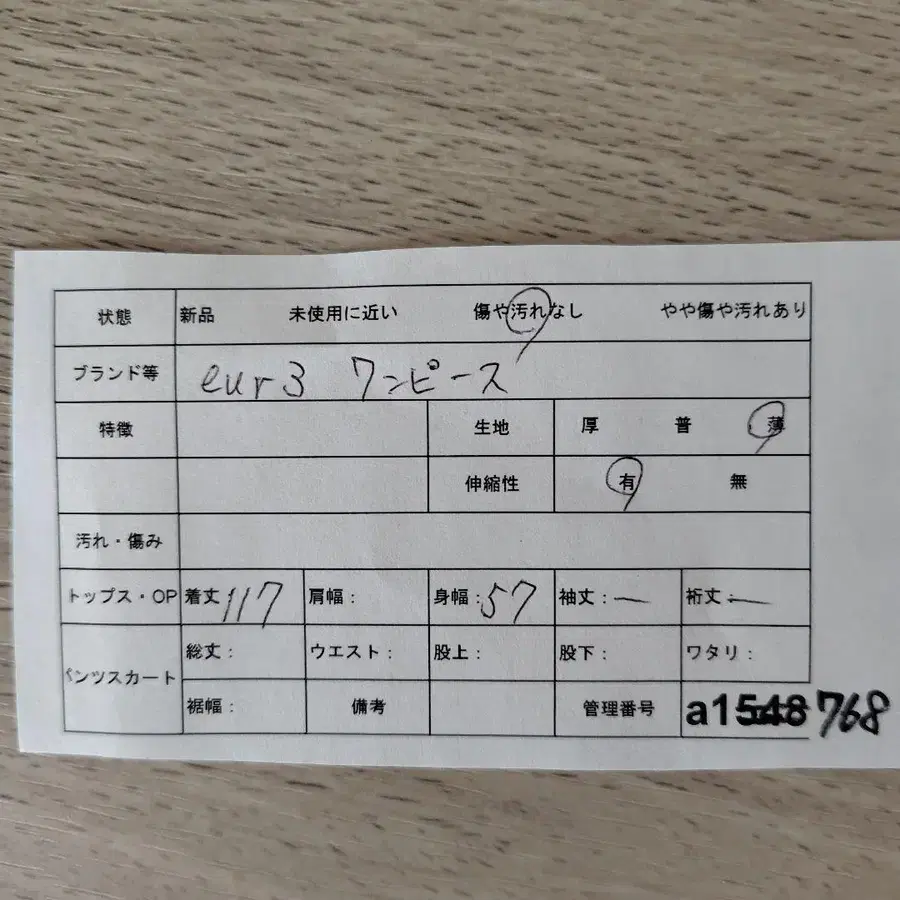 状態 新品 未使用に近い 傷や汚れなし やや傷や汚れあり
ブランド等 eur3 ワンピース
特徴 生地 厚 普 薄
伸縮性 有 無
汚れ・傷み
トップス・OP 着丈 117 肩幅： 身幅：57 袖丈：ー 裄丈：ー
総丈： ウエスト： 股上： 股下： ワタリ：
パンツスカート
裾幅： 備考 管理番号 a1548 768